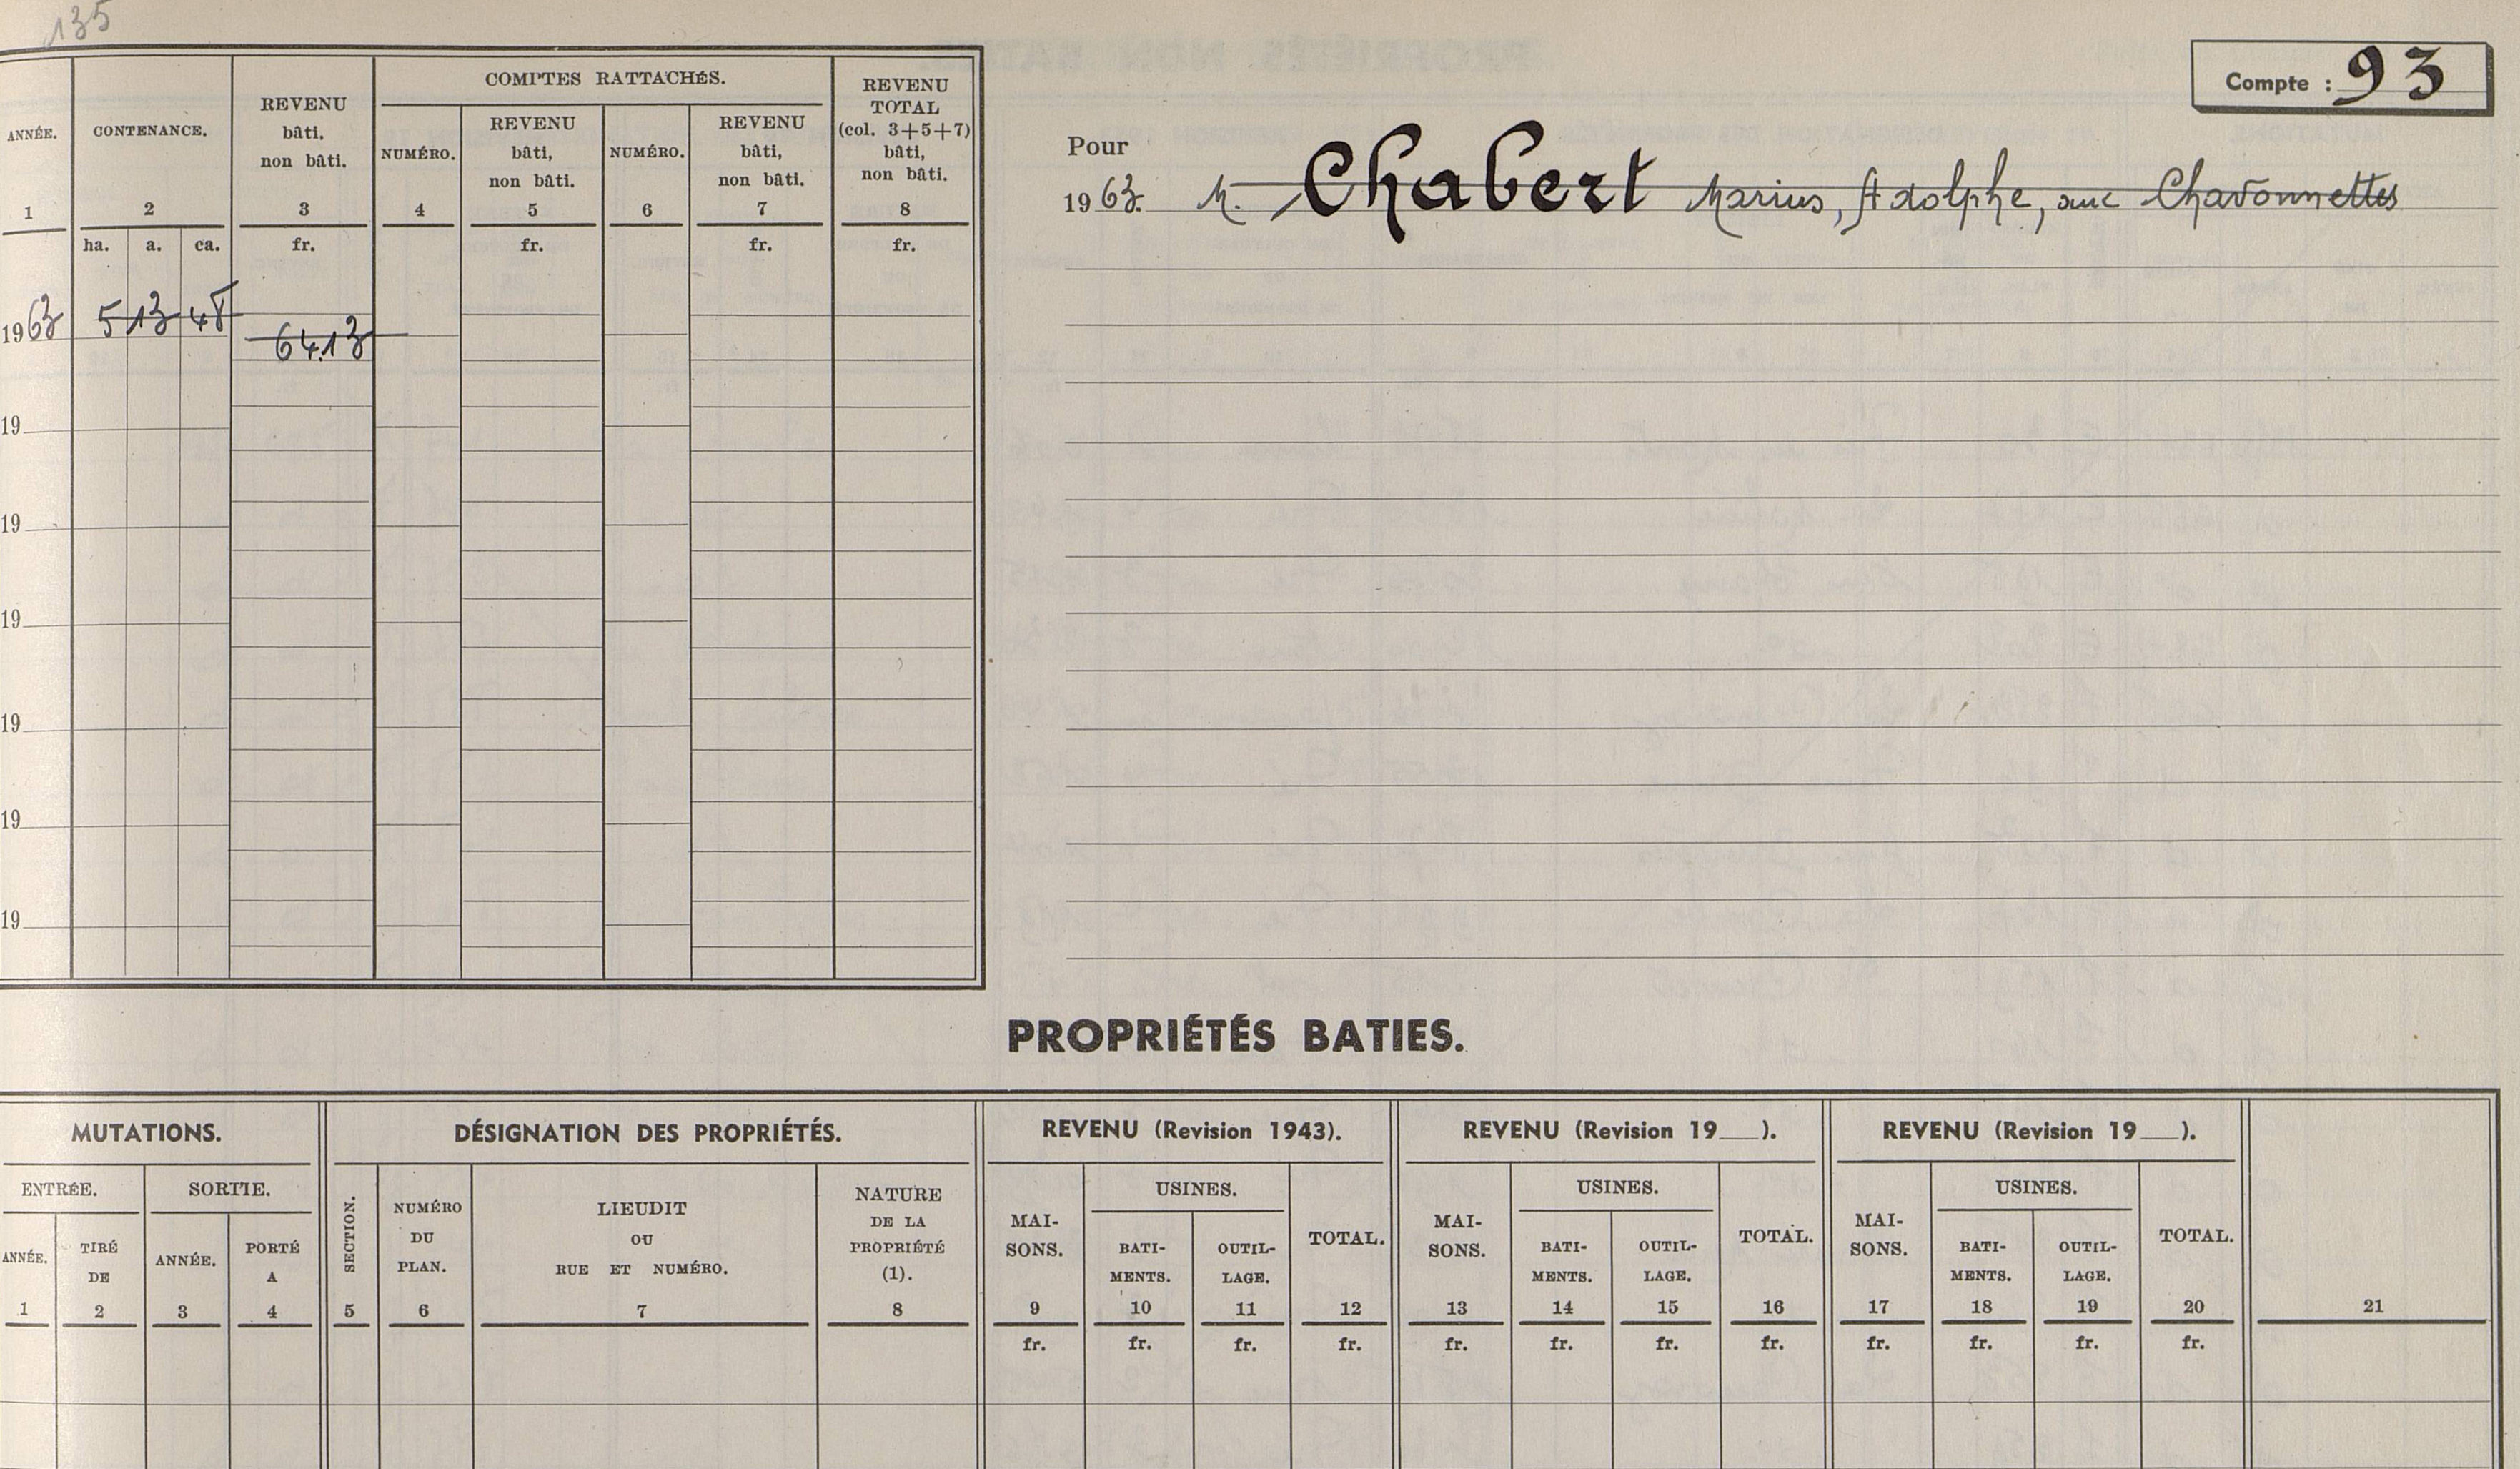 135
Compte : 93
ANNÉE. CONTENANCE. REVENU bâti, non bâti. COMPTES RATTACHÉS. REVENU TOTAL (col. 3+5+7) bâti, non bâti.
NUMÉRO. REVENU bâti, non bâti. NUMÉRO. REVENU bâti, non bâti.
1 2 3 4 5 6 7 8
ha. a. ca. fr. fr. fr. fr.
1963 5 13 48
64.13
19
19
19
19
19
19
Pour
1963. M. Chabert Marius, Adolphe, aux Chavonnettes
PROPRIÉTÉS BATIES.
MUTATIONS. DÉSIGNATION DES PROPRIÉTÉS. REVENU (Revision 1943). REVENU (Revision 19__). REVENU (Revision 19__).
ENTRÉE. SORTIE. SECTION. NUMÉRO DU PLAN. LIEUDIT OU RUE ET NUMÉRO. NATURE DE LA PROPRIÉTÉ (1). MAI-SONS. USINES. TOTAL. MAI-SONS. USINES. TOTAL. MAI-SONS. USINES. TOTAL.
ANNÉE. TIRÉ DE ANNÉE. PORTÉ A BATI-MENTS. OUTIL-LAGE. BATI-MENTS. OUTIL-LAGE. BATI-MENTS. OUTIL-LAGE.
1 2 3 4 5 6 7 8 9 10 11 12 13 14 15 16 17 18 19 20 21
fr. fr. fr. fr. fr. fr. fr. fr. fr. fr. fr. fr.